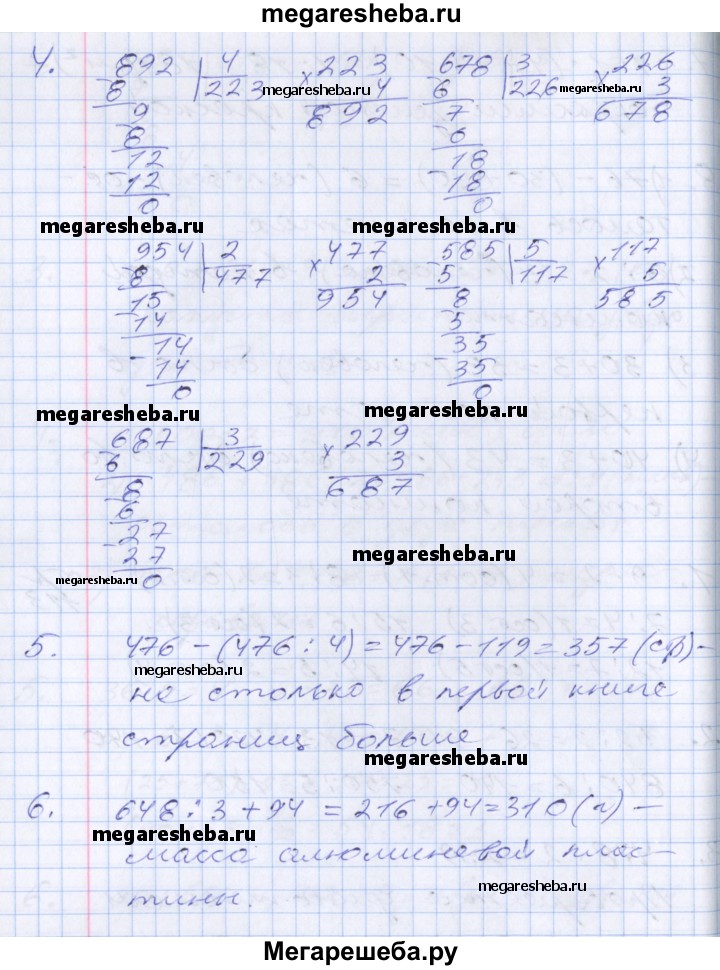 megaresheba.ru
4. 892 | 4 × 223 678 | 3 × 226
8 223 megaresheba.ru 4 6 226 megaresheba.ru 3
9 892 7 678
8 6
12 18
12 18
0 0
megaresheba.ru megaresheba.ru
954 | 2 × 477 585 | 5 × 117
8 477 2 5 117 5
15 954 8 585
14 5
14 35
14 35
0 0
megaresheba.ru megaresheba.ru
687 | 3 × 229
6 229 3
8 687
6
27
27
megaresheba.ru 0 megaresheba.ru
5. 476 - (476 : 4) = 476 - 119 = 357 (стр) -
megaresheba.ru
на столько в первой книге
страниц больше
megaresheba.ru
6. 648 : 3 + 94 = 216 + 94 = 310 (г) -
megaresheba.ru
масса алюминевой плас-
тины. megaresheba.ru
Мегарешеба.ру